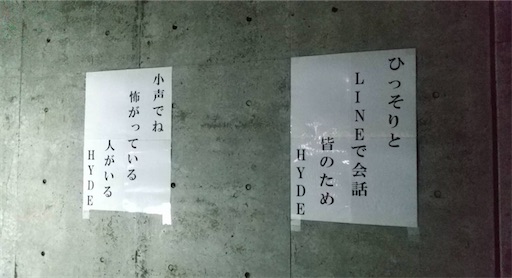 ひっそりと
LINEで会話
皆のため
HYDE
小声でね
怖がっている
人がいる
HYDE